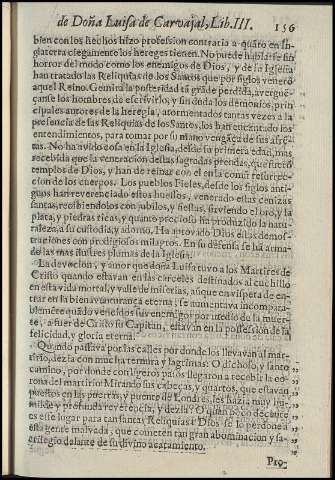 de Doña Luisa de Carvajal, Lib. III. 156
bien con los hechos hizo profession contraria a quāto en In-
glaterra ciegamente los hereges tienen. No puede hablarse sin
horror del modo como los enemigos de Dios, y de la Iglesia
han tratado las Reliquias de los Santos que por siglos venerò
aquel Reino. Gemirà la posteridad tā grāde perdida, avergue-
çanse los hombres de escrivirlo, y sin duda los demonios, prin-
cipales autores de la heregia, atormentados tantas vezes a la
presencia de las Reliquias de los Santos, les han encantado los
entendimientos, para tomar por su mano vengāça de sus afrē-
tas. No ha avido cosa en la Iglesia, desde su primera edad, mas
recebida que la veneracion destas sagradas prendas, que fuerō
templos de Dios, y han de reinar con el en la comū resurrec-
cion de los cuerpos. Los pueblos Fieles, desde los siglos anti-
guos han reverenciado estos huessos, venerado estas cenizas
santas, recibiendolos con jubilos, y fiestas, sirviendo el oro, y la
plata, y piedras ricas, y quanto precioso ha produzido la natu-
raleza, a su custodia, y adorno. Ha aprovado Dios estas demos-
traciones con prodigiosos milagros. En su defensa se hā arma-
do las mas ilustres plumas de la Iglesia.
La devocion, y amor que doña Luisa tuvo a los Martires de
Cristo quando estavan en las carceles destinados al cuchillo
en esta vida mortal, y valle de miserias, aunque en vispera de en-
trar en la bienaventurança eterna, se aumentava incompara-
blemēte quādo vencidos sus enemigos por medio de la muer-
te, a fuer de Cristo su Capitan, estavan en la possession de la
felicidad, y gloria eterna.
Quando passava por las calles por donde los llevavan al mar-
tirio, dezia con mucha ternura y lagrimas: O dichoso, y santo
camino, por donde con ligeros passos llegaron a recebir la co-
rona del martirio! Mirando sus cabeças, y quartos, que estavan
puestos en las puertas, y puente de Londres, les hazia muy hu-
milde y profunda reverencia, y dezia: O quan poco decente
es esse lugar para tan santas Reliquias! Dios se lo perdone a
esta gente malvada, que cometen tan gran abominacion y sa-
crilegio delante de su divino acatamiento.
Pro-